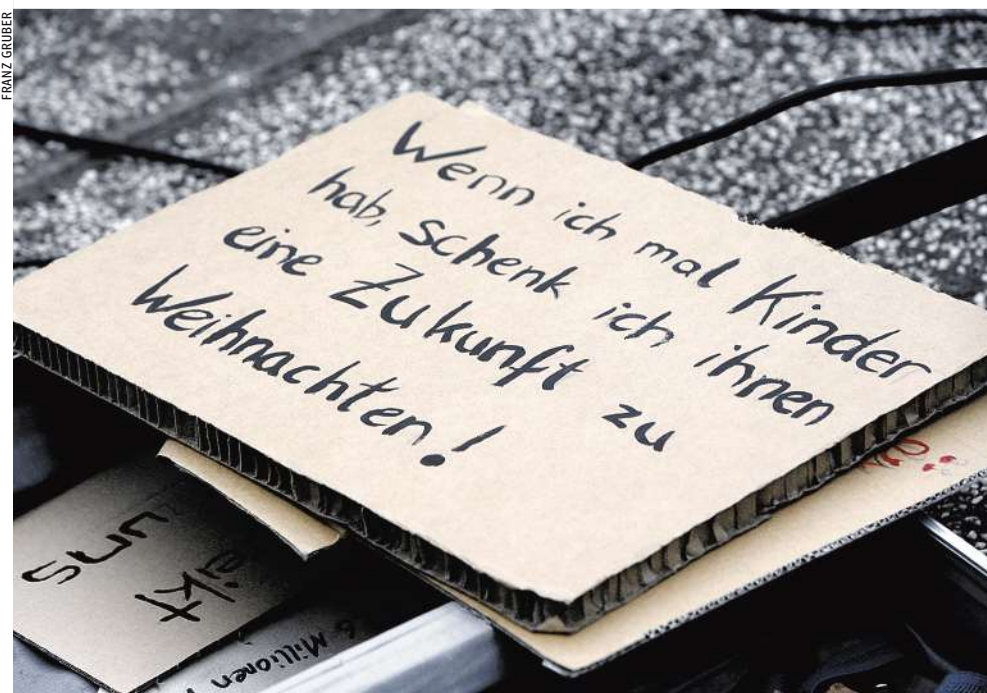 FRANZ GRUBER
Wenn ich mal Kinder
hab, schenk ich ihnen
eine Zukunft zu
Weihnachten!
eikt
uns
6 Millionen